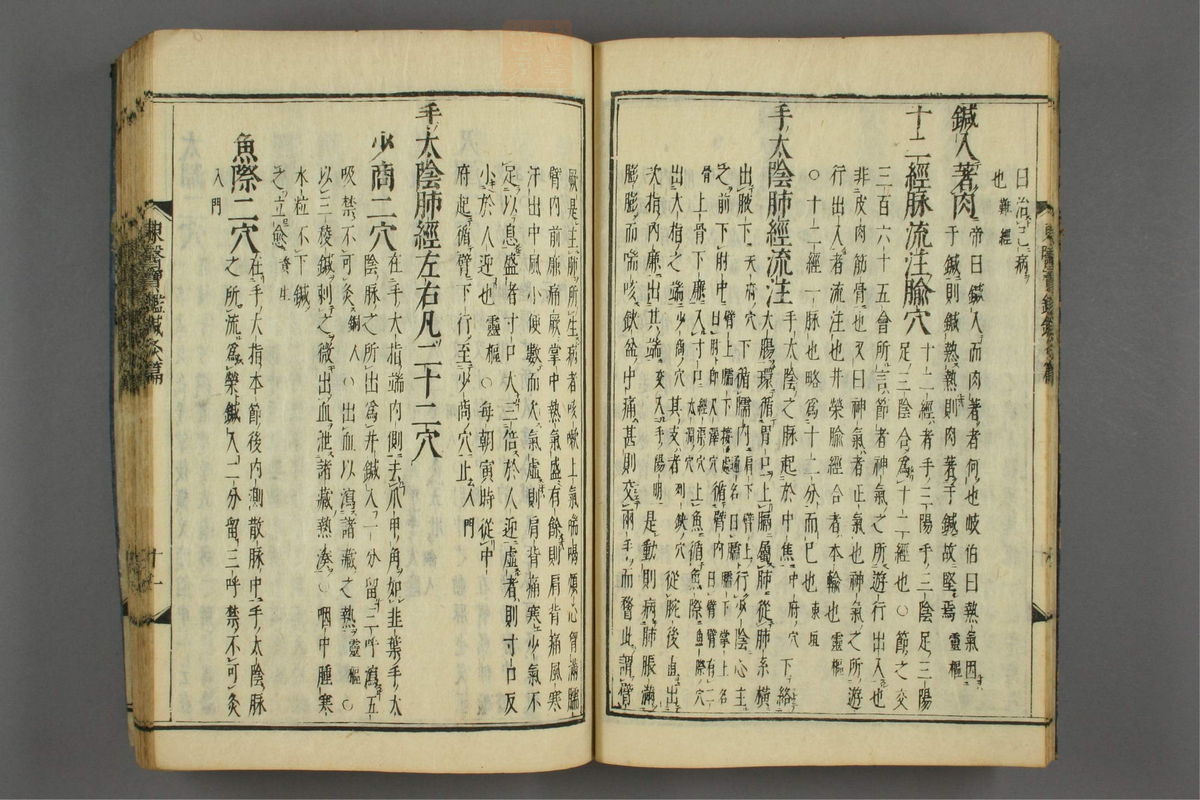 曰治已病
也難經
鍼入著肉帝曰鍼入而肉著者何也岐伯曰熱氣因
于鍼則鍼熱熱則肉著于鍼故堅焉靈樞
十二經脉流注腧穴十二經者手三陽手三陰足三陽
足三陰合爲十二經也○節之交
三百六十五會所言節者神氣之所遊行出入也
非皮肉筋骨也又曰神氣者正氣也神氣之所遊
行出入者流注也井滎腧經合者本輸也靈樞
○十二經一脉也略爲十二分而巳也東垣
手太陰肺經流注手太陰之脉起於中焦中府穴下絡
大腸環循胃口上膈屬肺從肺系橫
出腋下天府穴下循臑内肩下臂上通名曰臑行少陰心主
之前下肘中臂上臑下接處曰肘卽尺澤穴循臂内臑下掌上名曰臂臂有二
骨上骨下廉入寸口經渠穴太淵穴上魚循魚際魚際穴
出大指之端少商穴其支者列缺穴從腕後直出
次指内廉出其端交入手陽明是動則病肺脹滿
膨膨而喘咳缺盆中痛甚則交兩手而瞀此謂臂
厥是主肺所生病者咳嗽上氣喘喝煩心胷滿臑
臂内前廉痛厥掌中熱氣盛有餘則肩背痛風寒
汗出中風小便數而欠氣虛則肩背痛寒少氣不
足以息盛者寸口大三倍於人迎虛者則寸口反
小於人迎也靈樞○每朝寅時從中
府起循臂下行至少商穴止入門
手太陰肺經左右凡二十二穴
少商二穴在手大指端内側去爪甲角如韭葉手太
陰脉之所出爲井鍼入一分留三呼瀉五
吸禁不可灸銅人○出血以瀉諸藏之熱靈樞○
以三稜鍼刺之微出血泄諸藏熱湊○咽中腫塞
水粒不下鍼
之立愈資生
魚際二穴在手大指本節後内測散脉中手太陰脉
之所流爲滎鍼入二分留三呼禁不可灸
入門
東醫寶鑑鍼灸篇
十一